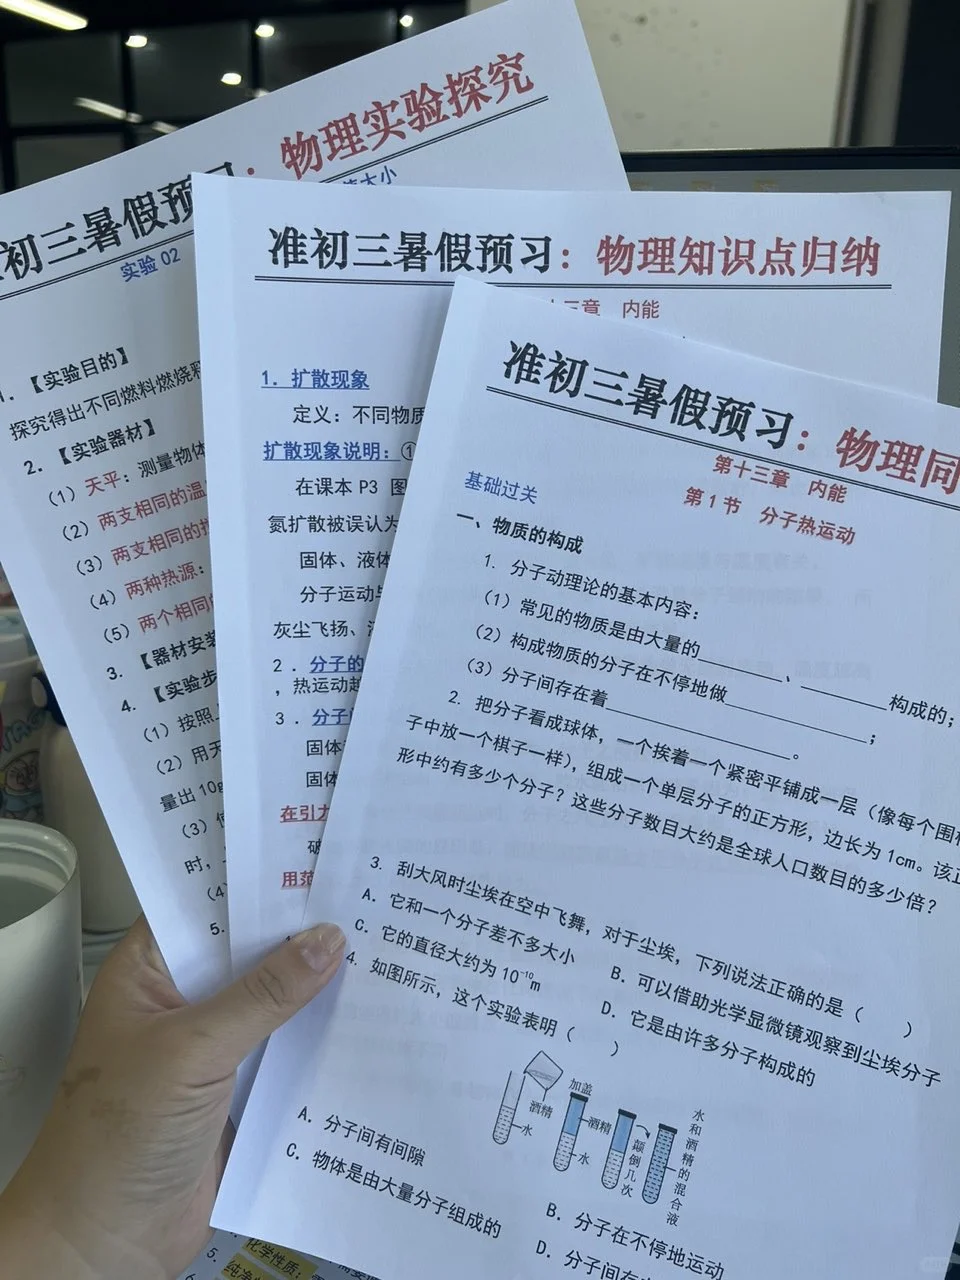 初三暑假预习：物理实验探究
实验 02
大小
1. 【实验目的】
探究得出不同燃料燃烧释
2. 【实验器材】
（1）天平：测量物体
（2）两支相同的温
（3）两支相同的
（4）两种热源：
（5）两个相同
3. 【器材安装
4. 【实验步
（1）按照
（2）用天
量出 10g
（3）
时，
（4）
5.
准初三暑假预习：物理知识点归纳
十三章 内能
1. 扩散现象
定义：不同物质
扩散现象说明：①
在课本 P3 图
氮扩散被误认为
固体、液体
分子运动与
灰尘飞扬、
2 . 分子的
，热运动越
3 . 分子
固体
固体
在引力
破
用范
准初三暑假预习：物理同
第十三章 内能
第 1 节 分子热运动
基础过关
一、物质的构成
1. 分子动理论的基本内容：
（1）常见的物质是由大量的________、________构成的；
（2）构成物质的分子在不停地做________；
（3）分子间存在着________。
2. 把分子看成球体，一个挨着一个紧密平铺成一层（像每个围棋
子中放一个棋子一样），组成一个单层分子的正方形，边长为 1cm。该正
形中约有多少个分子？这些分子数目大约是全球人口数目的多少倍？
3. 刮大风时尘埃在空中飞舞，对于尘埃，下列说法正确的是（ ）
A. 它和一个分子差不多大小 B. 可以借助光学显微镜观察到尘埃分子
C. 它的直径大约为 10⁻¹⁰m D. 它是由许多分子构成的
4. 如图所示，这个实验表明（ ）
酒精
水
加盖
酒精
水
颠倒几次
水和酒精的混合液
A. 分子间有间隙 B. 分子在不停地运动
C. 物体是由大量分子组成的 D. 分子间有
化学性质：
5.
纯净